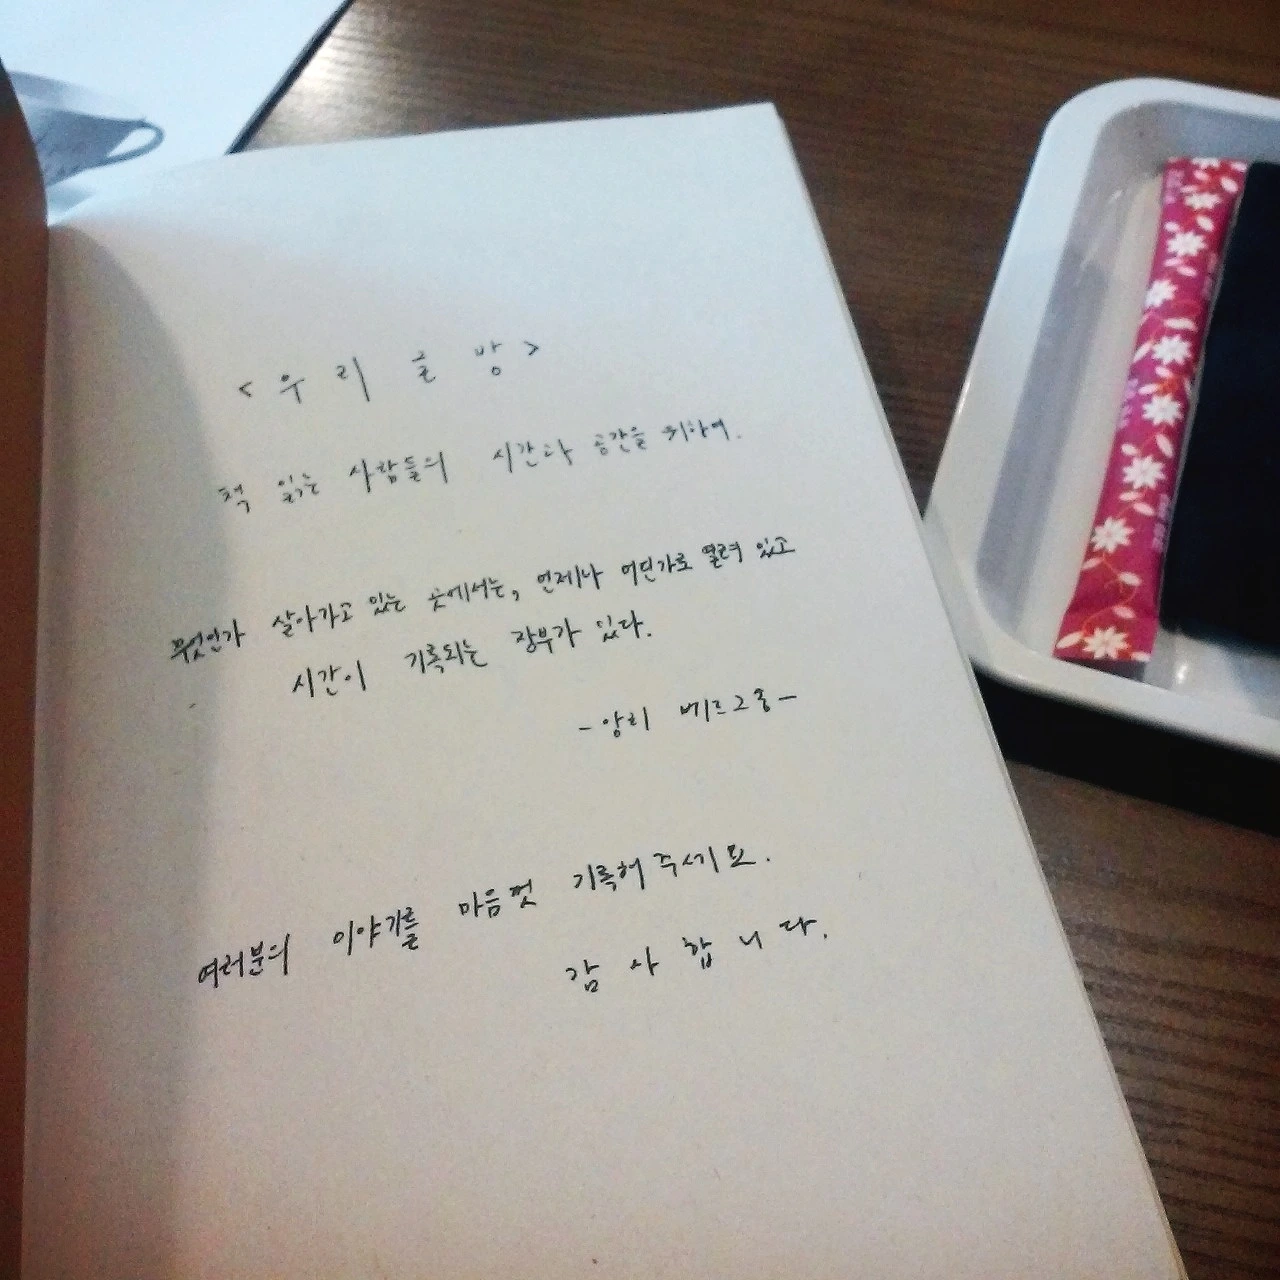 <우리글방>
책 읽는 사람들의 시간과 공간을 위하여.
무엇인가 살아가고 있는 곳에서는, 언제나 어딘가로 열려 있고
시간이 기록되는 장부가 있다.
-앙리 베르그송-
여러분의 이야기를 마음껏 기록해 주세요.
감사합니다.